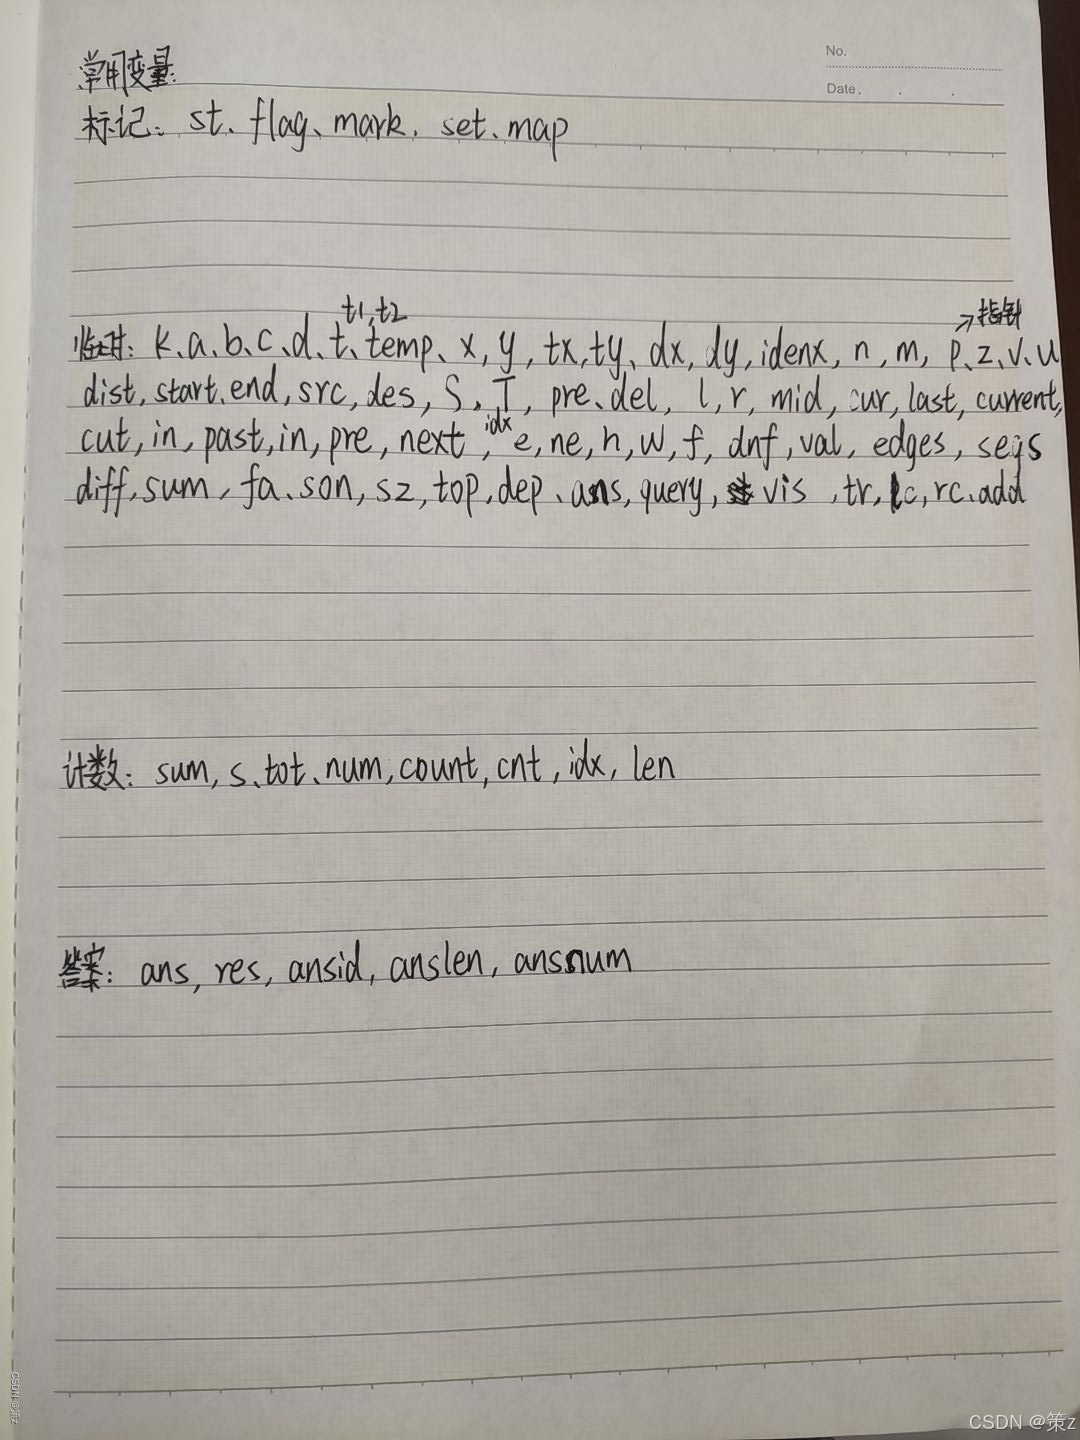 No.
Date
常用变量:
标记: st、flag、mark、set、map
t1,t2
→指针
临时: k、a、b、c、d、t、temp、x, y, tx, ty、dx, dy, idenx, n, m, p、z、v、u
dist, start、end, src, des, S, T, pre、del, l, r, mid, cur, last, current,
idx
cut, in, past, in, pre, next, e, ne, h, w, f, dnf, val, edges, segs
diff, sum, fa、son, sz, top, dep、ans, query, vis, tr, lc, rc、add
计数: sum, s、tot、num, count, cnt, idx, len
答案: ans, res, ansid, anslen, ansnum
CSDN @策z
CSDN @策z